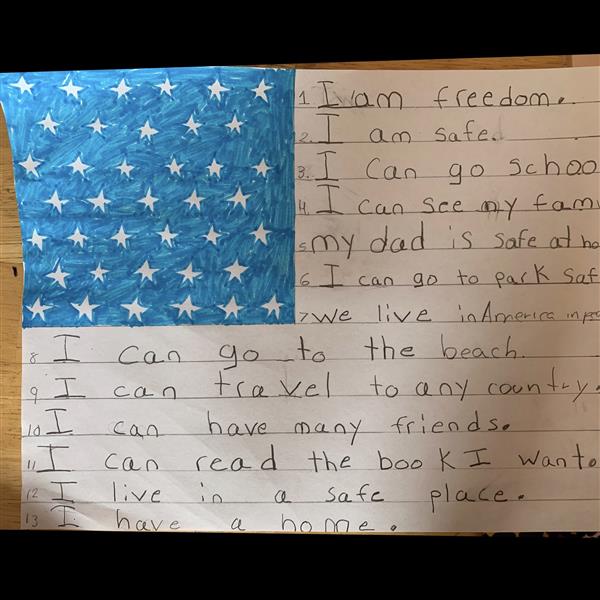 1 I am freedom.
2. I am safe.
3. I can go schoo
4 I can see my fam
5 my dad is safe at ho
6 I can go to park saf
7 we live in America in
8 I can go to the beach.
9 I can travel to any country.
10 I can have many friends.
11 I can read the book I want.
12 I live in a safe place.
13 I have a home.